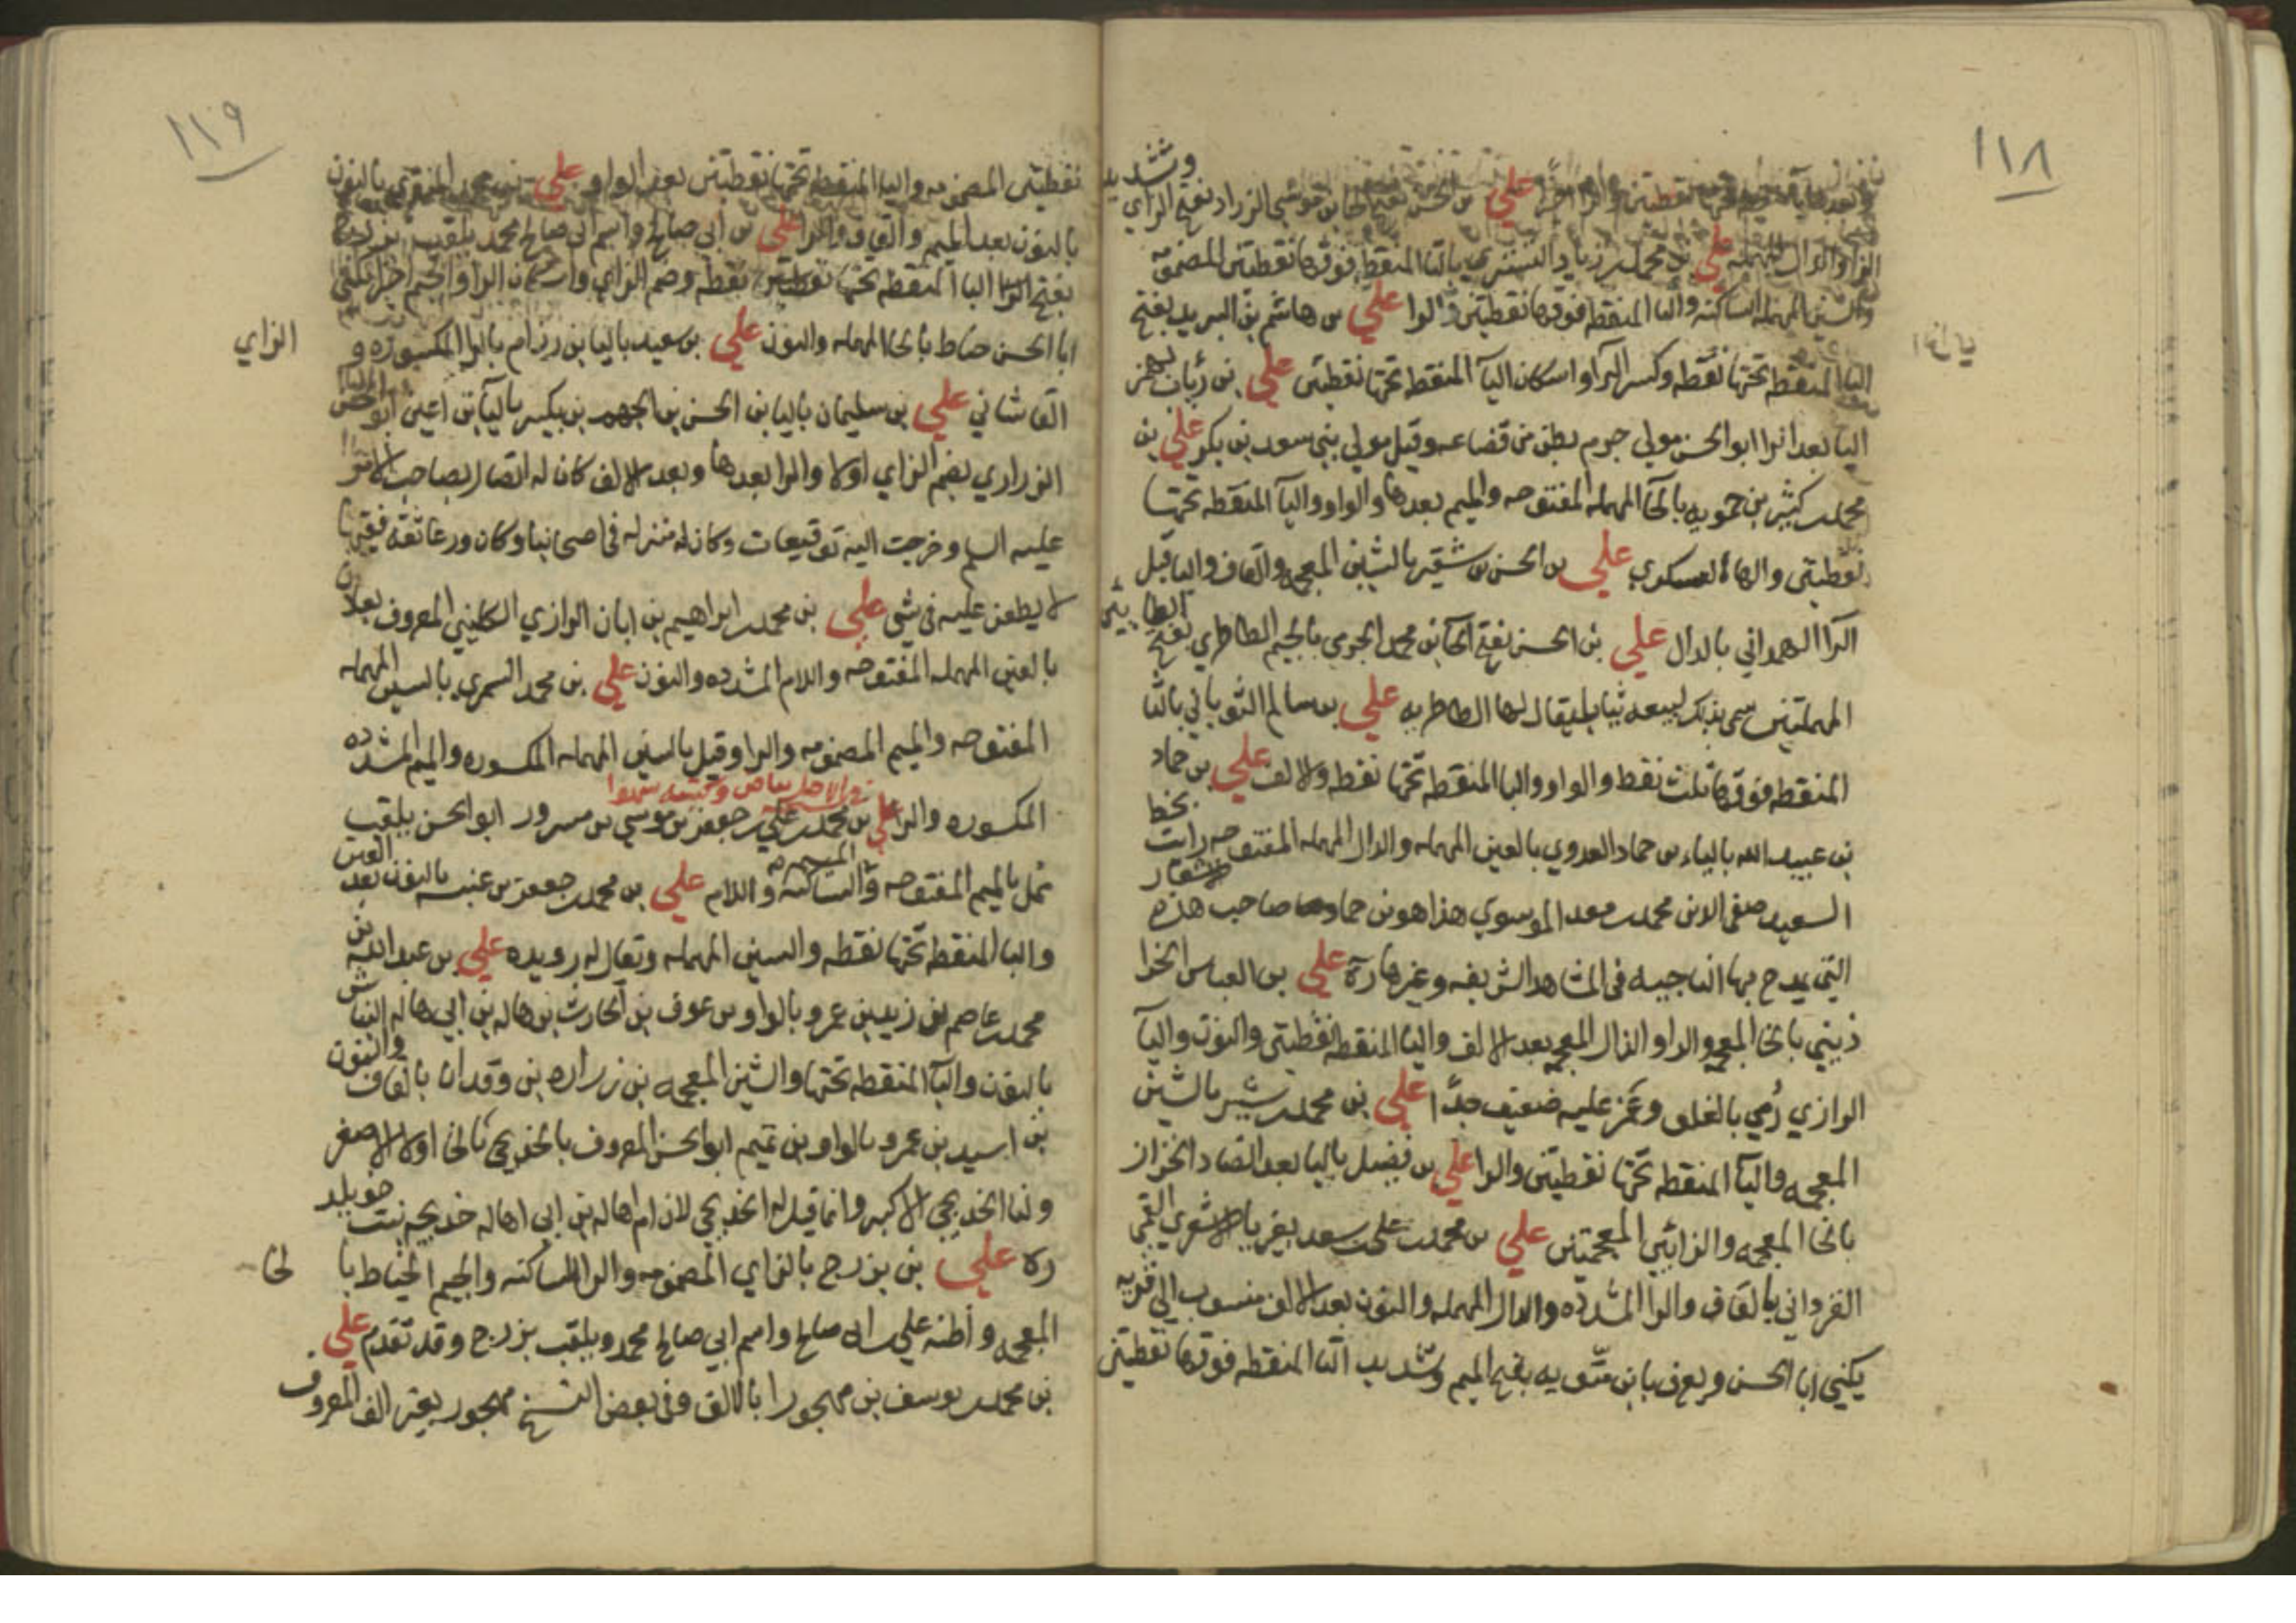 ١١٨
وتشديد
علي بن الحسن بفتح الحا بن الزراد بفتح الزاي
والدال المهمله علي بن محمد بن زياد التستري بالتا المنقطه فوقها نقطتين المضمومه
والسين المهمله الساكنه والتا المنقطه فوقها نقطتين والرا علي بن هاشم بن البريد بفتح
البا المنقطه تحتها نقطه وكسر الرا واسكان اليآ المنقطه تحتها نقطتين علي بن رئاب بهمز
اليا بعد الرا ابو الحسن مولي جرم بطن من قضاعه وقيل مولي بني سعد بن بكر علي بن
محمد بن كثير بن حمويه بالحآ المهمله المفتوحه والميم بعدها والواو واليآ المنقطه تحتها
نقطتين والهاء العسكري علي بن الحسن بن شقير بالشين المعجمه والقاف واليا قبل
الرآ الهمداني بالدال علي بن الحسن بفتح الحآ بن محمد الجرمي بالجيم الطاطري بفتح الطايين
المهملتين سمى بذلك لبيعه ثيابا يقال لها الطاطريه علي بن سالم الثوباني بالثا
المنقطه فوقها ثلث نقط والواو والبا المنقطه تحتها نقطه والالف علي بن حماد
بن عبيد الله بالياء بن حماد العدوي بالعين المهمله والدال المهمله المفتوحه رايت بخط
السعيد صفى الدين محمد بن معد الموسوي هذا هو بن حماد صاحب هذه الاشعار
التي يمدح بها الناحيه في المشاهد الشريفه وغيرها ره علي بن العباس الخرا
ذيني بالخا المعجمه والرا والذال المعجمه بعد الالف واليا المنقطه نقطتين والنون واليآ
الرازي رُمي بالغلو وغمز عليه ضعيف جدًّا علي بن محمد بن شيرا بالشين
المعجمه واليآ المنقطه تحتها نقطتين والرا علي بن فضيل باليا بعد الضاد الخزاز
بالخا المعجمه والزايين المعجمتين علي بن محمد بن علي بن سعد بغير يا الاشعري القمي
القزداني بالقاف والرا المشدده والدال المهمله والنون بعد الالف منسوب الي قريه
يكنى ابا الحسن ويعرف بابن متّويه بفتح الميم وتشديد التا المنقطه فوقها نقطتين
١١٩
نقطتين المضمومه واليا المنقطه تحتها نقطتين بعد الواو علي بن محمد المنقري بالنون
بالنون بعد الميم والقاف والرا علي بن ابي صالح واسم ابي صالح محمد يلقب بزرج
بفتح البا المنقطه تحتها نقطه وضم الزاي واسكان الرا والجيم اخيرا يكنى
ابا الحسن حناط بالحا المهمله والنون علي بن سعيد باليا بن رزام بالرا المكسوره و
الزاي
القاشاني علي بن سليمان باليا بن الحسن بن الجهم بن بكير باليآ بن اعين ابو الحسن
الزراري بضم الزاي اولا والرا بعدها وبعد الالف كان له اتصال بصاحب الامر
عليه السلم وخرجت اليه توقيعات وكان له منزله في اصحابنا وكان ورعا ثقة فقيها
لا يطعن عليه في شي علي بن محمد بن ابراهيم بن ابان الرازي الكليني المعروف بعلان
بالعين المهمله المفتوحه واللام المشدده والنون علي بن محمد السمري بالسين المهمله
المفتوحه والميم المضمومه والرا وقيل بالسين المهمله المكسوره والميم المشدده
في الاصل بياض وكتبته سهوا
المكسوره والرا علي بن محمد بن علي بن جعفر بن موسي بن مسرور ابو الحسن يلقب
ممل بالميم المفتوحه والساكنه واللام علي بن محمد بن جعفر بن عنبسه بالنون بعد العين
والبا المنقطه تحتها نقطه والسين المهمله ويقال له بن رويده علي بن عبد الله بن
محمد بن عاصم بن زيد بن عمرو بالواو بن عوف بن الحارث بن هاله بن ابي هاله النباش
بالنون والبآ المنقطه تحتها والشين المعجمه بن زراره بن وقدان بالقاف والنون
بن اسيد بن عمرو بالواو بن تميم ابو الحسن المعروف بالخديجي بالخا اولا الاصغر
ولنا الخديجي الاكبر وانما قيل له الخديجي لان ام هاله بن ابي اهاله خديجه بنت خويلد
ره علي بن بزرج بالزاي المضمومه والرا الساكنه والجيم الخياط با
لخا
المعجمه واظنه علي بن ابي صالح واسم ابي صالح محمد ويلقب بزرج وقد تقدم علي
بن محمد بن يوسف بن مهجورا بالالف وفي بعض النسخ مهجور بغير الف المعروف